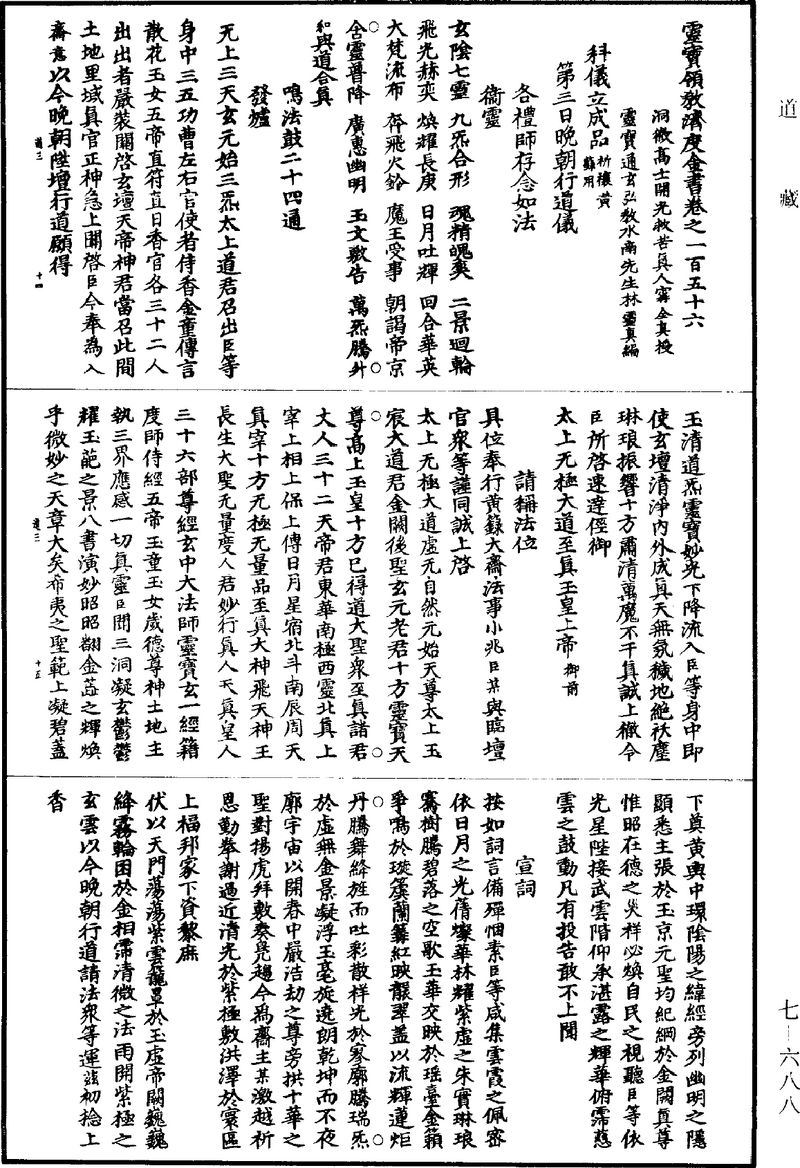 道藏
七—六八八
靈寶領教濟度金書卷之一百五十六
洞微高士開光救苦真人甯全真授
靈寶通玄弘教水南先生林靈真編
科儀立成品祈禳黃籙用
第三日晚朝行道儀
各禮師存念如法
衞靈
玄陰七靈　九炁合形　魂精魄奭　二景迴輪
飛光赫奕　煥耀長庚　日月吐輝　回合華英
大梵流布　奔飛火鈴　魔王受事　朝謁帝京
含靈普降　廣惠幽明　玉文敷告　萬炁騰升
和與道合真
鳴法鼓二十四通
發爐
无上三天玄元始三炁太上道君召出臣等
身中三五功曹左右官使者侍香金童傳言
散花玉女五帝直符直日香官各三十二人
出出者嚴裝關啓玄壇天帝神君當召此間
土地里域真官正神急上關啓臣今奉為入
齋意以今晚朝陞壇行道願得
道三　十四
玉清道炁靈寶妙光下降流入臣等身中即
使玄壇清淨內外咸真天無氛穢地絕袄塵
琳琅振響十方肅清萬魔不干真誠上徹令
臣所啓速達徑御
太上无極大道至真玉皇上帝御前
請稱法位
具位奉行黃籙大齋法事小兆臣某與臨壇
官衆等謹同誠上啓
太上无極大道虛无自然元始天尊太上玉
宸大道君金闕後聖玄元老君十方靈寶天
尊高上玉皇十方已得道大聖衆至真諸君
丈人三十二天帝君東華南極西靈北真上
宰上相上保上傅日月星宿北斗南辰周天
真宰十方无極无量品至真大神飛天神王
長生大聖无量度人君妙行真人天真皇人
三十六部尊經玄中大法師靈寶玄一經籍
度師侍經五帝玉童玉女歲德尊神土地主
執三界應感一切真靈臣聞三洞凝玄鬱鬱
耀玉葩之景八書演妙昭昭翻金蘂之輝煥
乎微妙之天章大矣希夷之聖範上凝碧蓋
道三　十五
下奠黃輿中環陰陽之緯經旁列幽明之隱
顯悉主張於玉京元聖均紀綱於金闕真尊
惟昭在德之災祥必煥自民之視聽臣等依
光星陛接武雲階仰承湛露之輝華俯霈慈
雲之鼓動凡有投告敢不上聞
宣詞
按如詞言備殫悃素臣等咸集雲霞之佩密
依日月之光蒨燦華林耀紫虛之朱實琳琅
騫樹騰碧落之空歌玉華交映於瑶臺金籟
爭鳴於璇霂蘭篝紅映靉翠蓋以流輝蓮炬
丹騰舞絳旌而吐彩散祥光於寥廓騰瑞炁
於虛無金景凝浮玉毫旋遶朗乾坤而不夜
廓宇宙以開春中嚴浩劫之尊旁拱十華之
聖對揚虎拜敷奏鳧趨今為齋主某激越祈
恩勤拳謝過近清光於紫極敷洪澤於寰區
上福邦家下資黎庶
伏以天門蕩蕩紫雲靄覃於玉虛帝闕巍巍
絳霧輪囷於金相霈清微之法雨開紫極之
玄雲以今晚朝行道請法衆等運茲初捻上
香